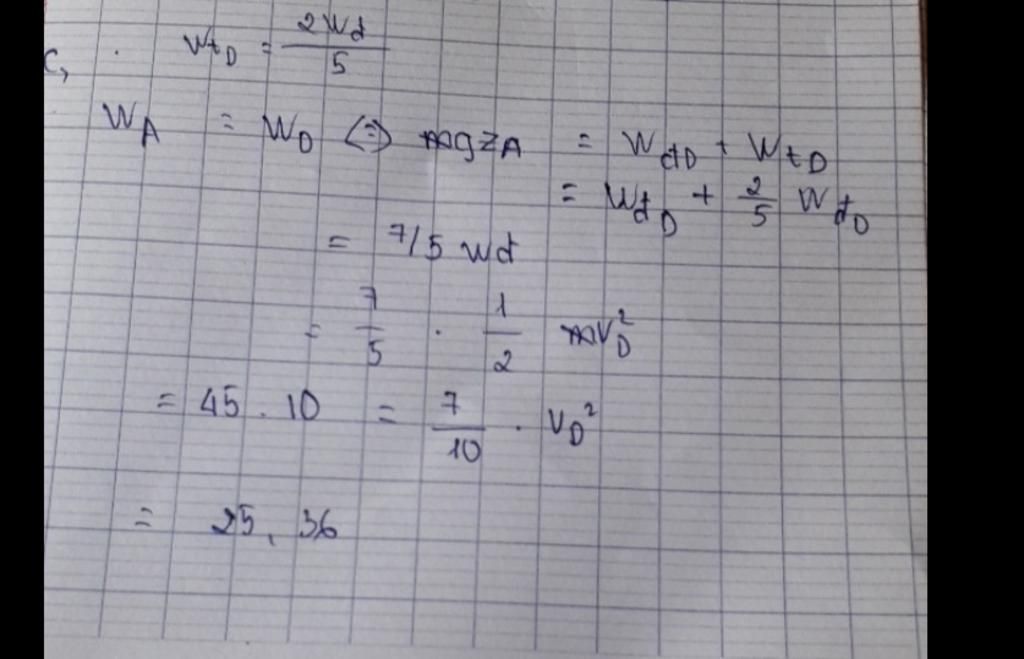 c, . WtD = 2Wđ / 5
WA = WD <=> mgzA = WđD + WtD
= WđD + 2/5 WđD
= 7/5 Wđ
= 7/5 . 1/2 mVD²
= 45 . 10 = 7/10 . VD²
= 25,36